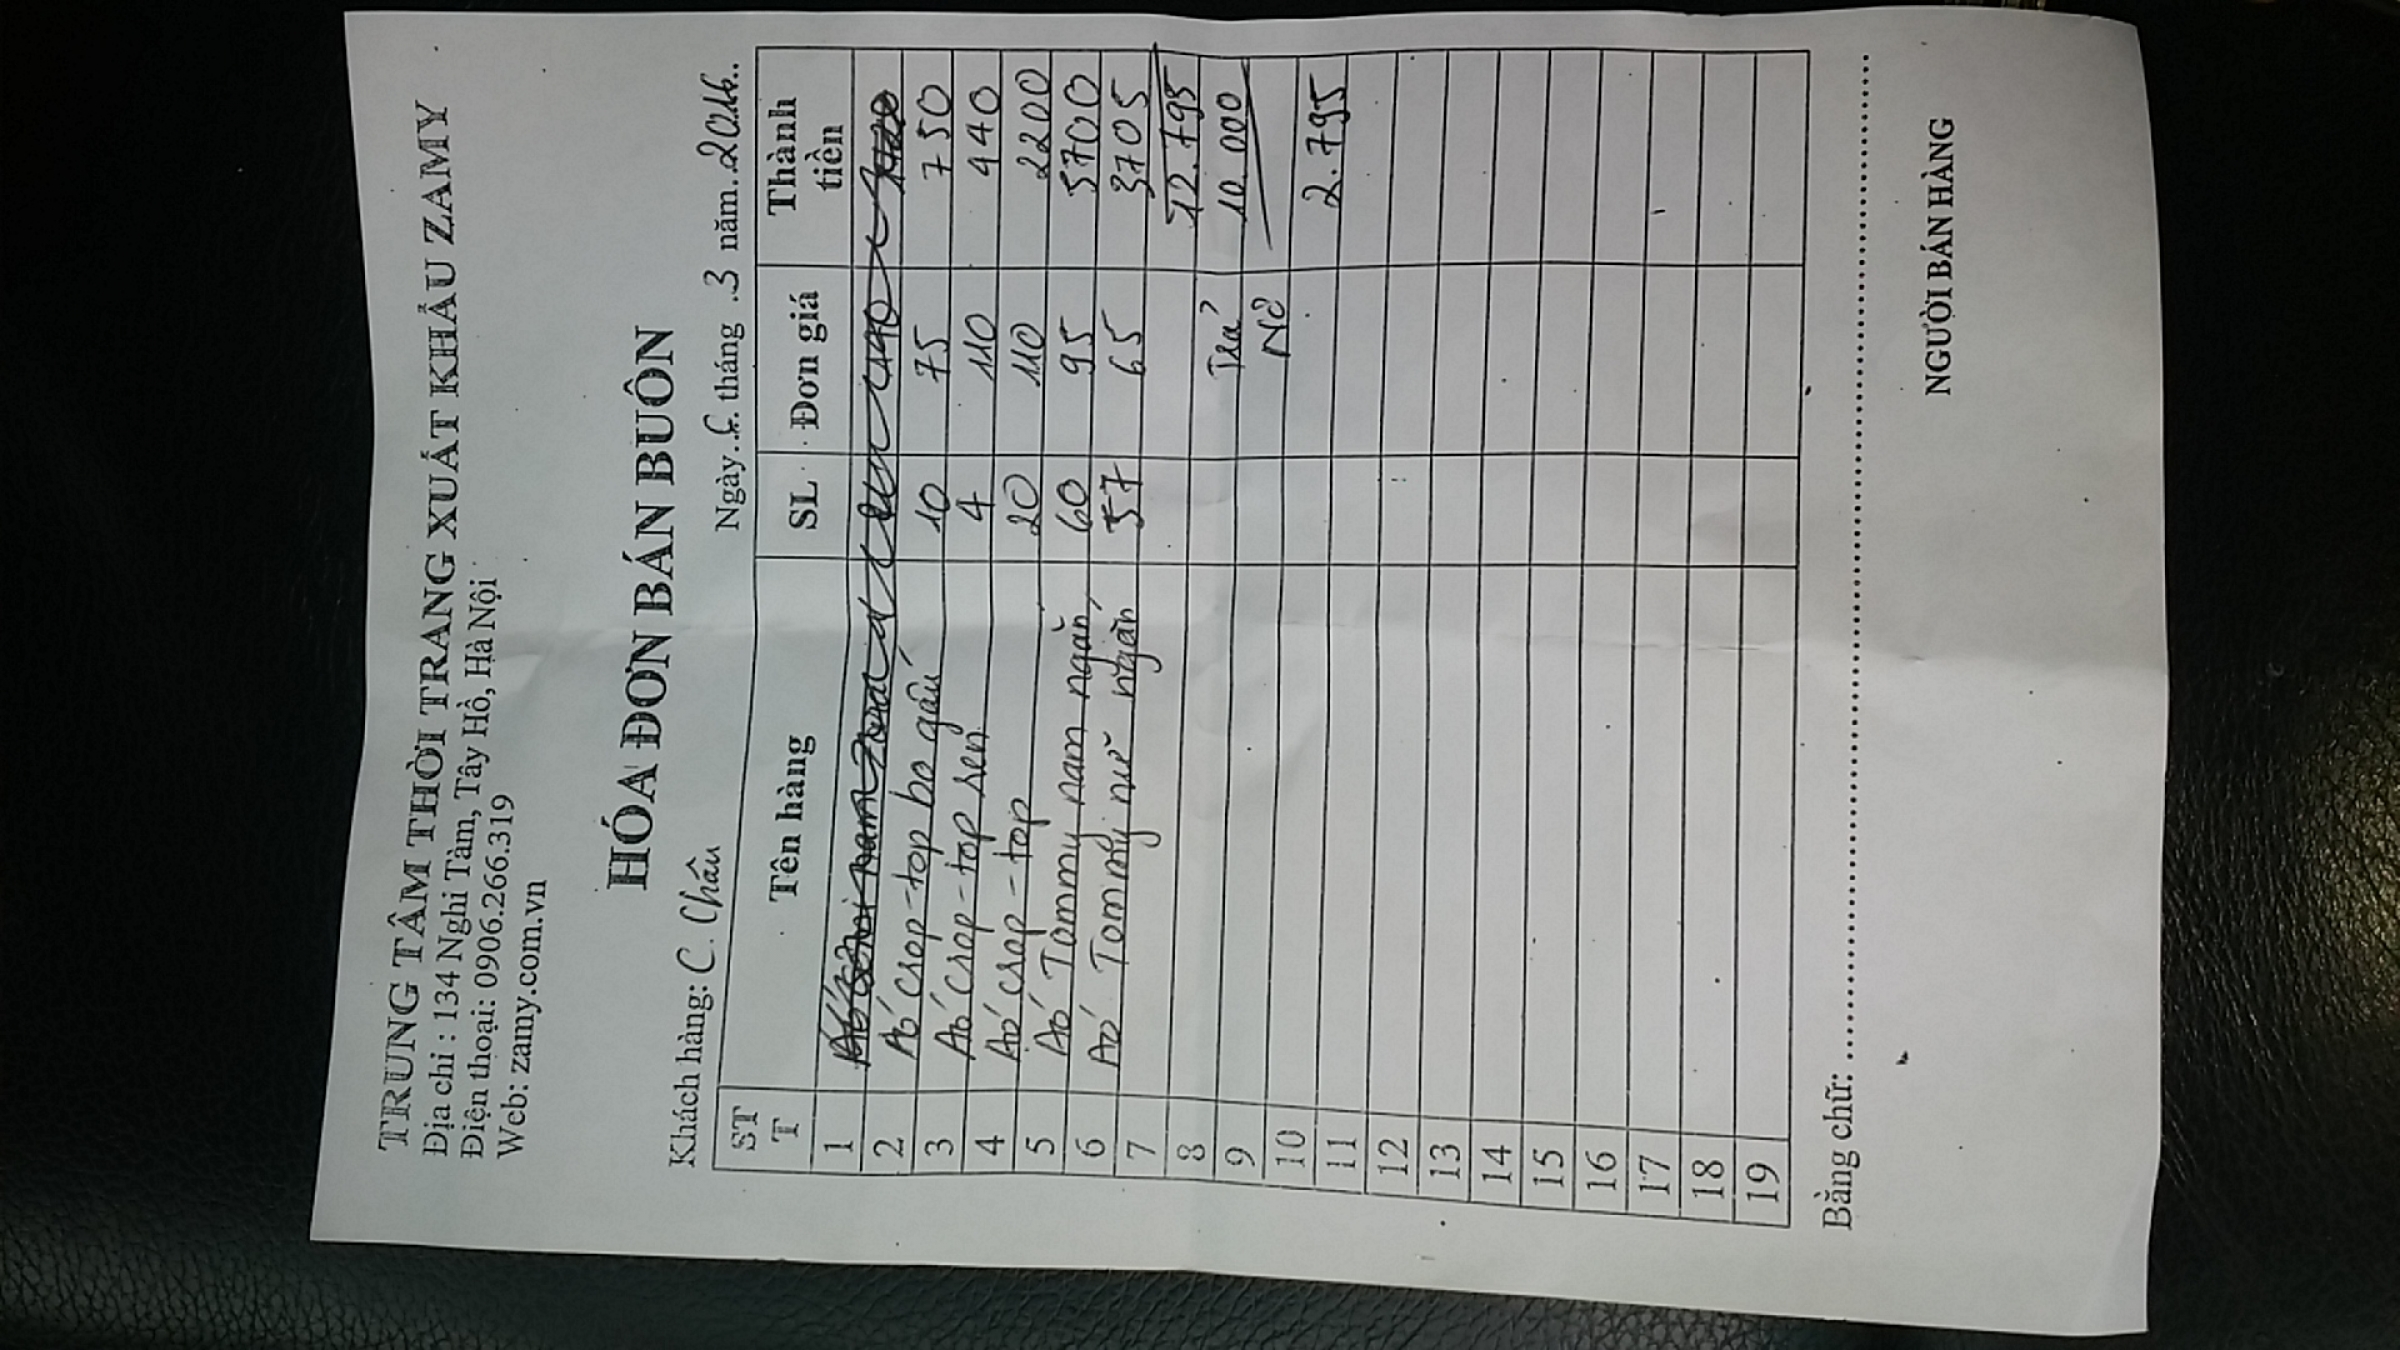 TRUNG TÂM THỜI TRANG XUẤT KHẨU ZAMY
Địa chỉ : 134 Nghi Tàm, Tây Hồ, Hà Nội
Điện thoại: 0906.266.319
Web: zamy.com.vn
HÓA ĐƠN BÁN BUÔN
Khách hàng: C. Châu
Ngày tháng 3 năm 2016
STT Tên hàng SL Đơn giá Thành tiền
1
2 Áo crop-top bo gấu 10 75 750
3 Áo crop-top sen 4 110 440
4 Áo crop-top 20 110 2200
5 Áo Tommy nam ngắn 60 95 5700
6 Áo Tommy nữ ngắn 57 65 3705
7 12.795
8 Trả 10.000
9 Nợ
10 2.795
11
12
13
14
15
16
17
18
19
Bằng chữ:
NGƯỜI BÁN HÀNG